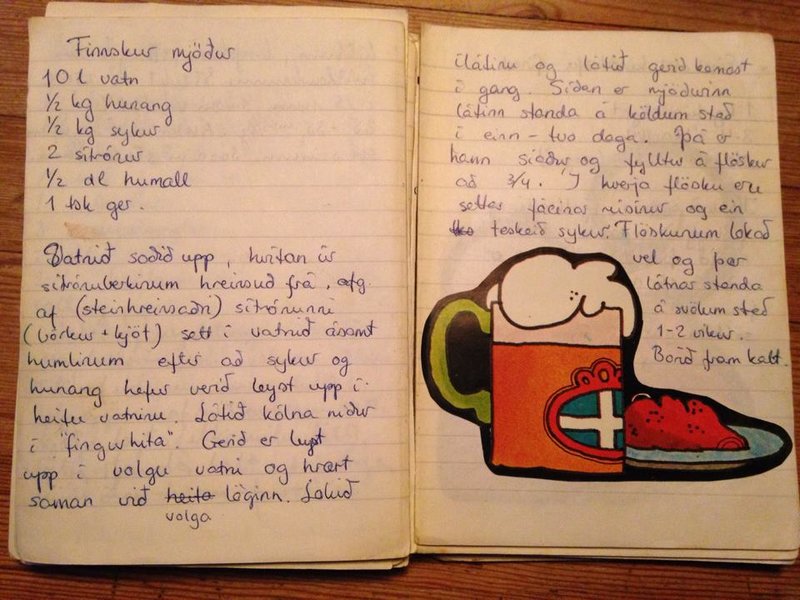 Finnskur mjöður
10 l vatn
1/2 kg hunang
1/2 kg sykur
2 sítrónur
1/2 dl humall
1 tsk ger.
Vatnið soðið upp, hvítan úr
sítrónuberkinum hreinsuð frá, afg.
af (steinhreinsaðri) sítrónunni
(börkur + kjöt) sett í vatnið ásamt
humlinum eftir að sykur og
hunang hefur verið leyst upp í
heitu vatninu. Látið kólna niður
í "fingurhita". Gerið er leyst
upp í volgu vatni og hrært
saman við heita löginn. Lokið
volga
ílátinu og látið gerið komast
í gang. Síðan er mjöðurinn
látinn standa á köldum stað
í einn - tvo daga. Þá er
hann síaður og fylltur á flöskur
að 3/4. Í hverja flösku eru
settar fáeinar rúsínur og ein
teskeið sykur. Flöskunum lokað
vel og þær
látnar standa
á svölum stað
1-2 vikur.
Borið fram kalt.